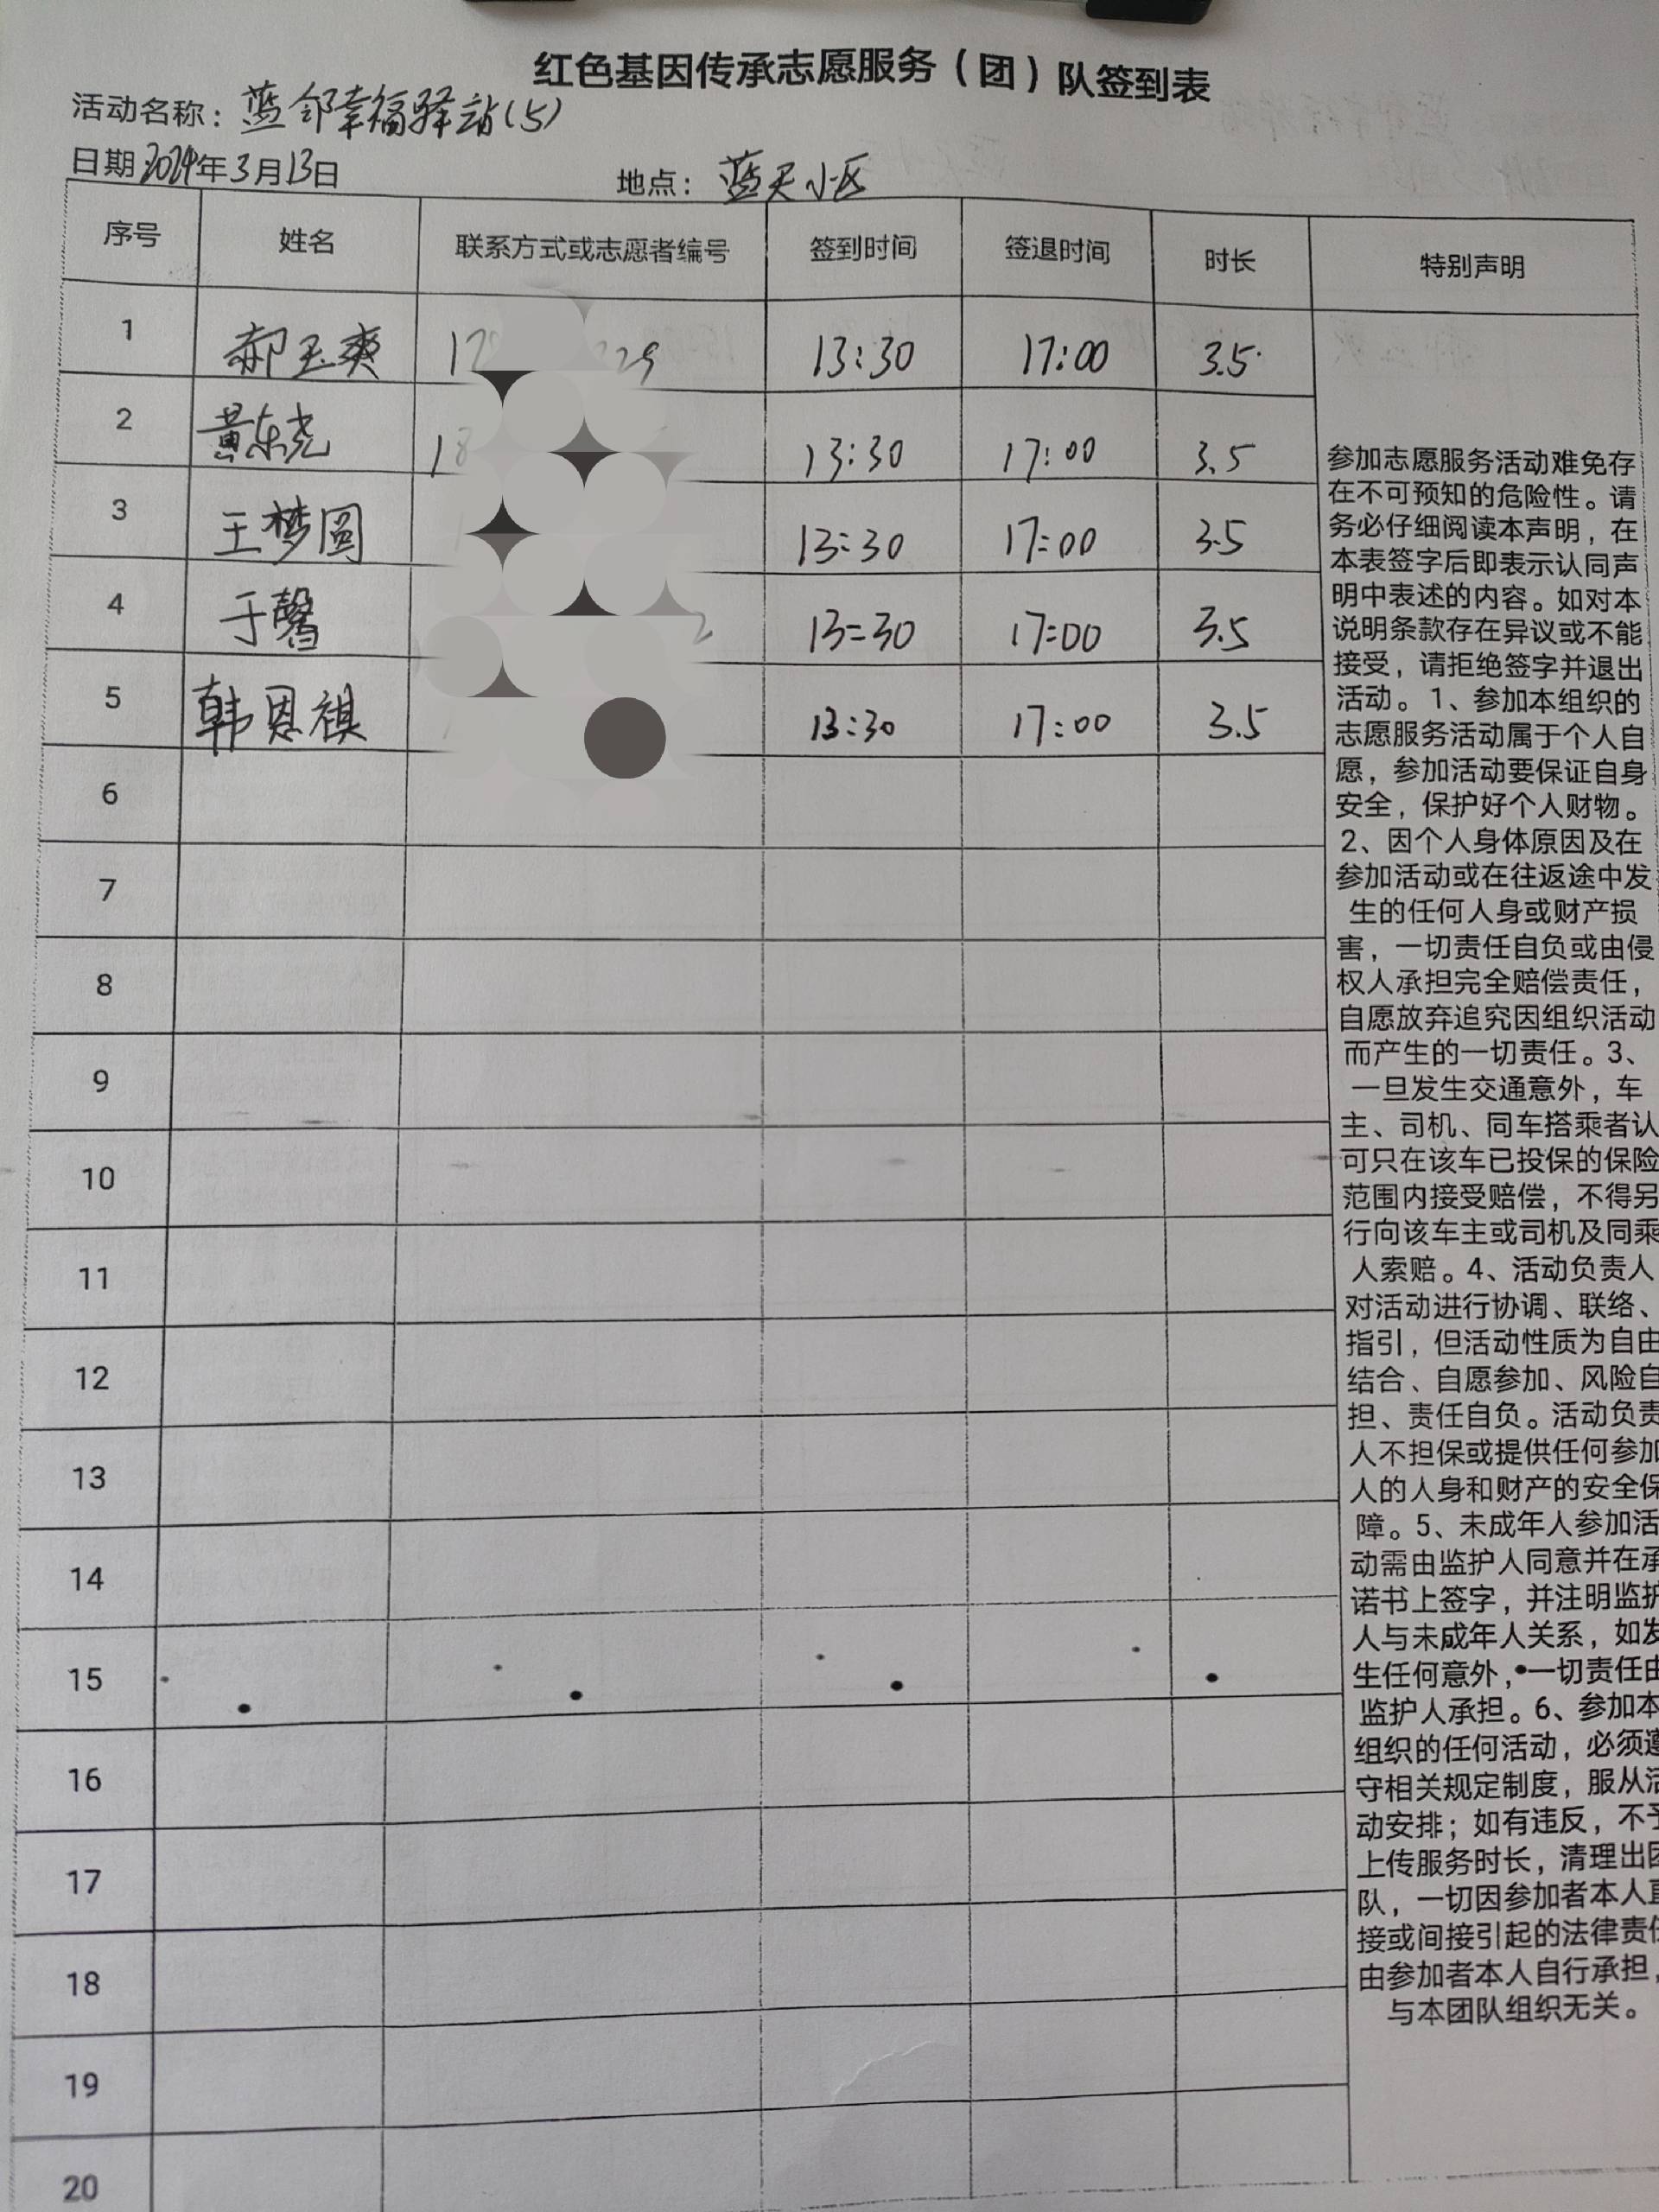 红色基因传承志愿服务（团）队签到表
活动名称：蓝邻幸福驿站(5)
日期2024年3月13日 地点：蓝天小区
序号 姓名 联系方式或志愿者编号 签到时间 签退时间 时长 特别声明
1 郝玉爽 13:30 17:00 3.5
2 黄东尧 13:30 17:00 3.5
3 王梦圆 13:30 17:00 3.5
4 于馨 13:30 17:00 3.5
5 韩恩祺 13:30 17:00 3.5
6
7
8
9
10
11
12
13
14
15
16
17
18
19
20
参加志愿服务活动难免存
在不可预知的危险性。请
务必仔细阅读本声明，在
本表签字后即表示认同声
明中表述的内容。如对本
说明条款存在异议或不能
接受，请拒绝签字并退出
活动。1、参加本组织的
志愿服务活动属于个人自
愿，参加活动要保证自身
安全，保护好个人财物。
2、因个人身体原因及在
参加活动或在往返途中发
生的任何人身或财产损
害，一切责任自负或由侵
权人承担完全赔偿责任，
自愿放弃追究因组织活动
而产生的一切责任。3、
一旦发生交通意外，车
主、司机、同车搭乘者认
可只在该车已投保的保险
范围内接受赔偿，不得另
行向该车主或司机及同乘
人索赔。4、活动负责人
对活动进行协调、联络、
指引，但活动性质为自由
结合、自愿参加、风险自
担、责任自负。活动负责
人不担保或提供任何参加
人的人身和财产的安全保
障。5、未成年人参加活
动需由监护人同意并在承
诺书上签字，并注明监护
人与未成年人关系，如发
生任何意外，一切责任由
监护人承担。6、参加本
组织的任何活动，必须遵
守相关规定制度，服从活
动安排；如有违反，不予
上传服务时长，清理出团
队，一切因参加者本人直
接或间接引起的法律责任
由参加者本人自行承担，
与本团队组织无关。